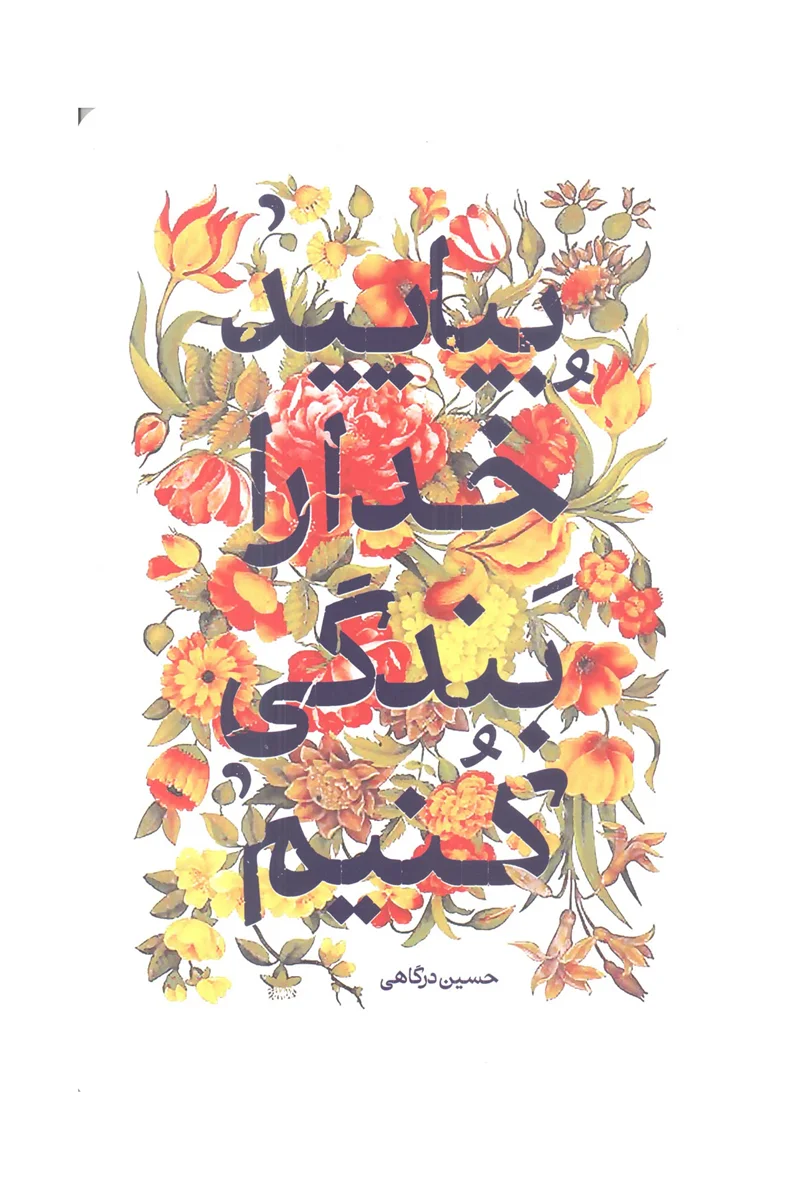 بیایید
خدا را
بندگی
کنیم
حسین درگاهی